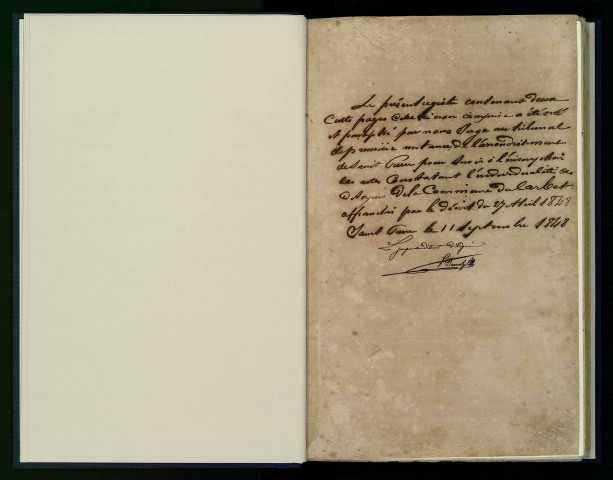 Le présent registre contenant deux
Cents pages Celle ci non comprise a été coté
et paraphé par nous Juge au tribunal
de première instance de l'arrondissement
de Saint Pierre pour servir à l'inscription
des actes Constatant l'individualité des
citoyens de la Commune du Carbet
affranchis par le décret du 27 Avril 1848
Saint Pierre le 11 Septembre 1848